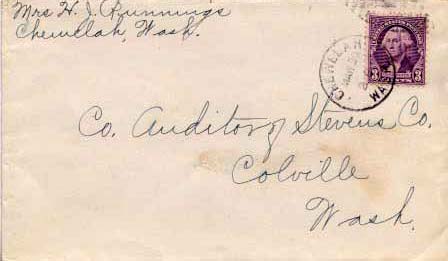 Mrs H. J. Runnings
Chewelah, Wash.
CHEWELAH
WASH
3 3
Co. Auditor of Stevens Co.
Colville
Wash.